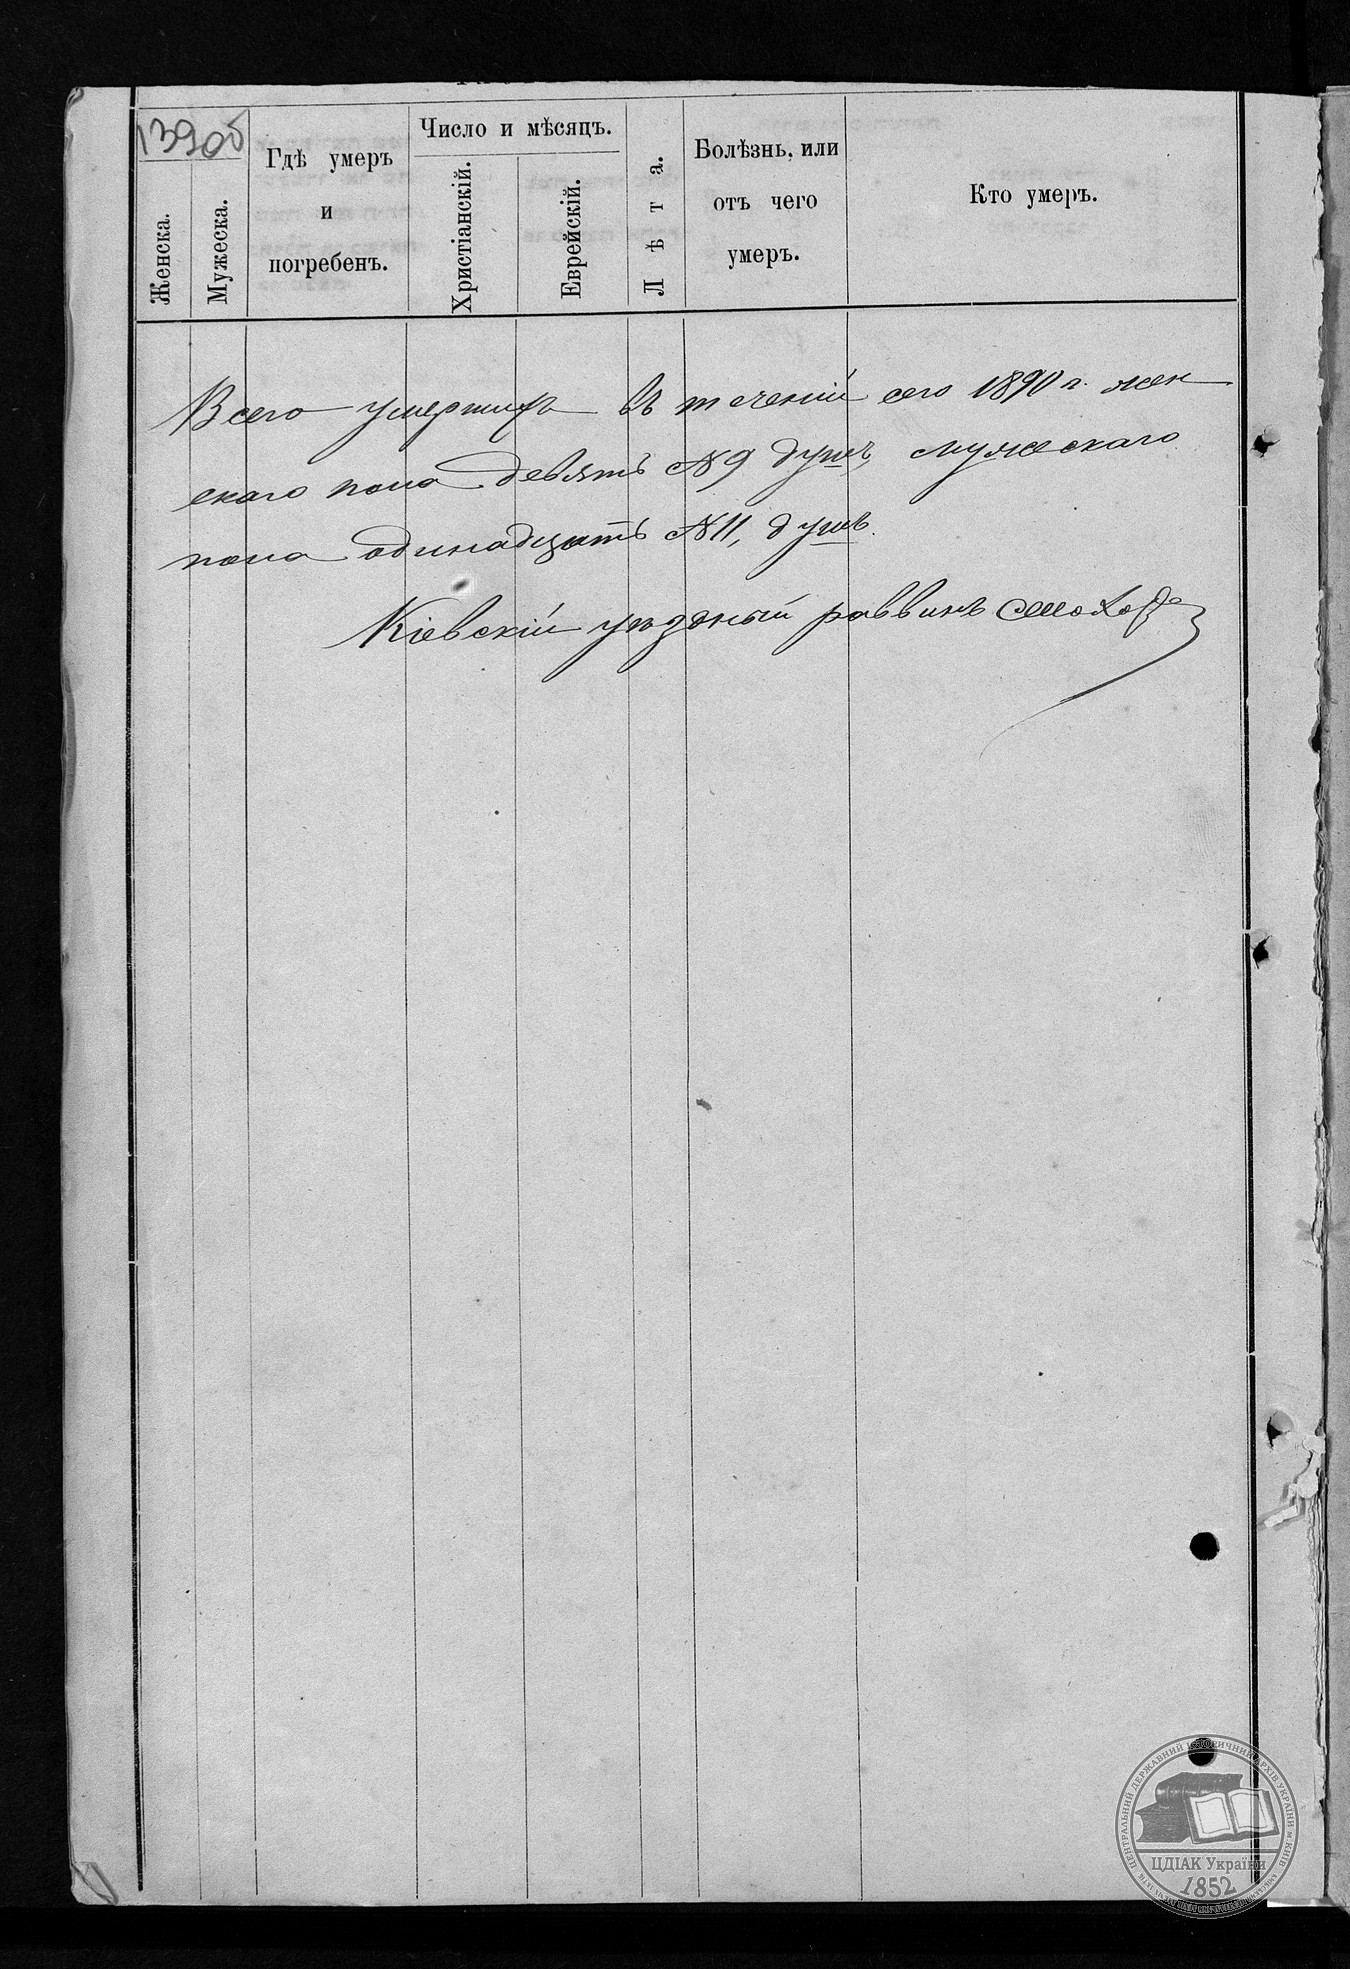 139об
Женска.
Мужеска.
Гдѣ умеръ
и
погребенъ.
Число и мѣсяцъ.
Христіанскій.
Еврейскій.
Лѣта.
Болѣзнь, или
отъ чего
умеръ.
Кто умеръ.
Всего умершихъ въ теченіи сего 1890 г. жен
скаго пола девять №9 душъ, мужескаго
пола одинадцать №11, душъ.
Кіевскій уѣздный раввинъ
ЦЕНТРАЛЬНИЙ ДЕРЖАВНИЙ ІСТОРИЧНИЙ АРХІВ УКРАЇНИ м. КИЇВ
ЦДІАК України
1852